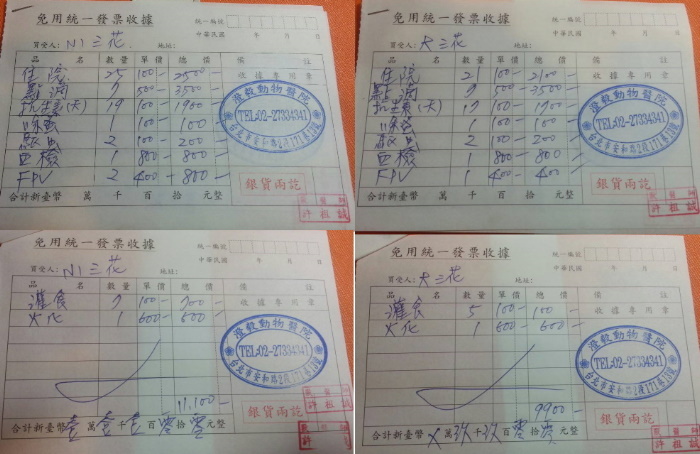 免用統一發票收據
統一編號
中華民國 年 月 日
買受人: N1三花 地址:
品 名 數量 單價 總價 備 註
住院 25 100- 2500-
收據專用章
點滴 7 500- 3500-
抗生素(天) 19 100- 1900-
除蚤 1 100- 100-
驅虫 2 100- 200-
血檢 1 800- 800-
FPV 2 400- 800-
合計新臺幣 萬 千 百 拾 元整
澄毅動物醫院
TEL:02-27334341
台北市安和路2段171巷18號
銀貨兩訖
獸醫師
許祖誠
免用統一發票收據
統一編號
中華民國 年 月 日
買受人: 大三花 地址:
品 名 數量 單價 總價 備 註
住院 21 100- 2100-
收據專用章
點滴 7 500- 3500-
抗生素(天) 17 100- 1700-
除蚤 1 100- 100-
驅虫 2 100- 200-
血檢 1 800- 800-
FPV 1 400- 400-
合計新臺幣 萬 千 百 拾 元整
澄毅動物醫院
TEL:02-27334341
台北市安和路2段171巷18號
銀貨兩訖
獸醫師
許祖誠
免用統一發票收據
統一編號
中華民國 年 月 日
買受人: N1三花 地址:
品 名 數量 單價 總價 備 註
灌食 7 100- 700-
收據專用章
火化 1 600- 600-
澄毅動物醫院
TEL:02-27334341
台北市安和路2段171巷18號
11,100-
銀貨兩訖
合計新臺幣 壹 萬 壹 千 壹 百 零 拾 零 元整
獸醫師
許
免用統一發票收據
統一編號
中華民國 年 月 日
買受人: 大三花 地址:
品 名 數量 單價 總價 備 註
灌食 5 100-
收據專用章
火化 1 600- 600-
澄毅動物醫院
TEL:02-27334341
台北市安和路2段171巷18號
9900-
銀貨兩訖
合計新臺幣 X 萬 玖 千 玖 百 零 拾 零 元整
獸醫師
許祖誠